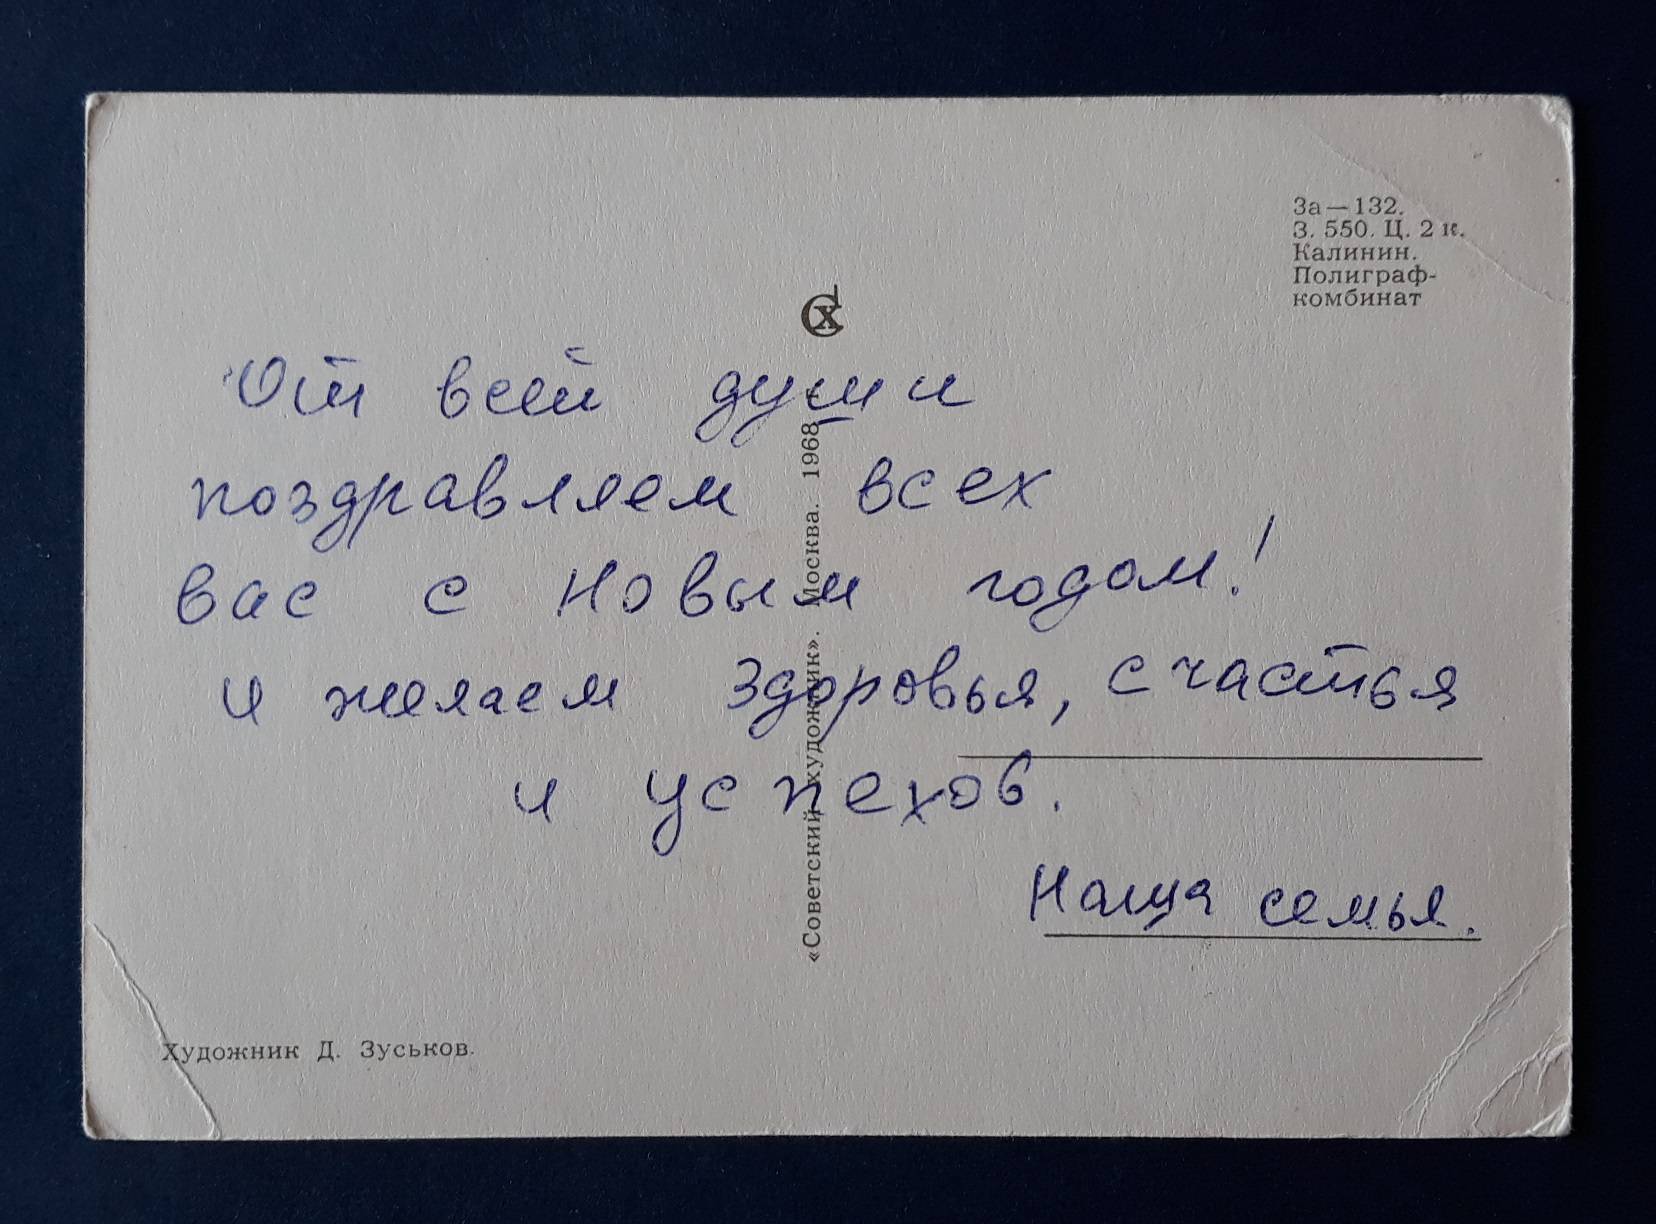 За—132.
З. 550. Ц. 2 к.
Калинин.
Полиграф-
комбинат
СХ
От всей души
поздравляем всех
вас с Новым годом!
и желаем здоровья, счастья
и успехов.
Наша семья.
«Советский художник». Москва. 1968
Художник Д. Зуськов.